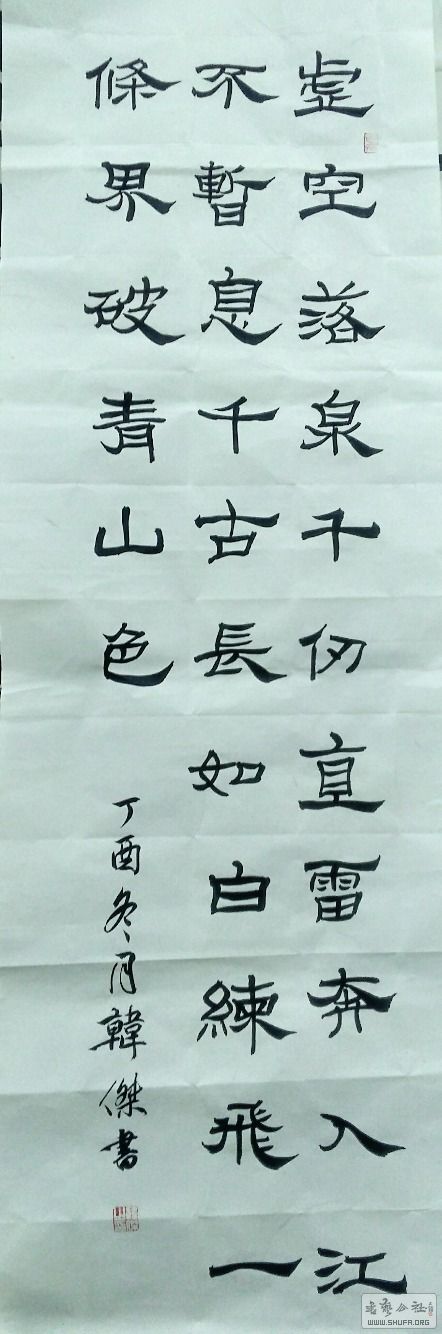 虛空落泉千仞直雷奔入江
不暫息千古長如白練飛一
條界破青山色
丁酉冬月韓傑書
WWW.SHUFA.ORG